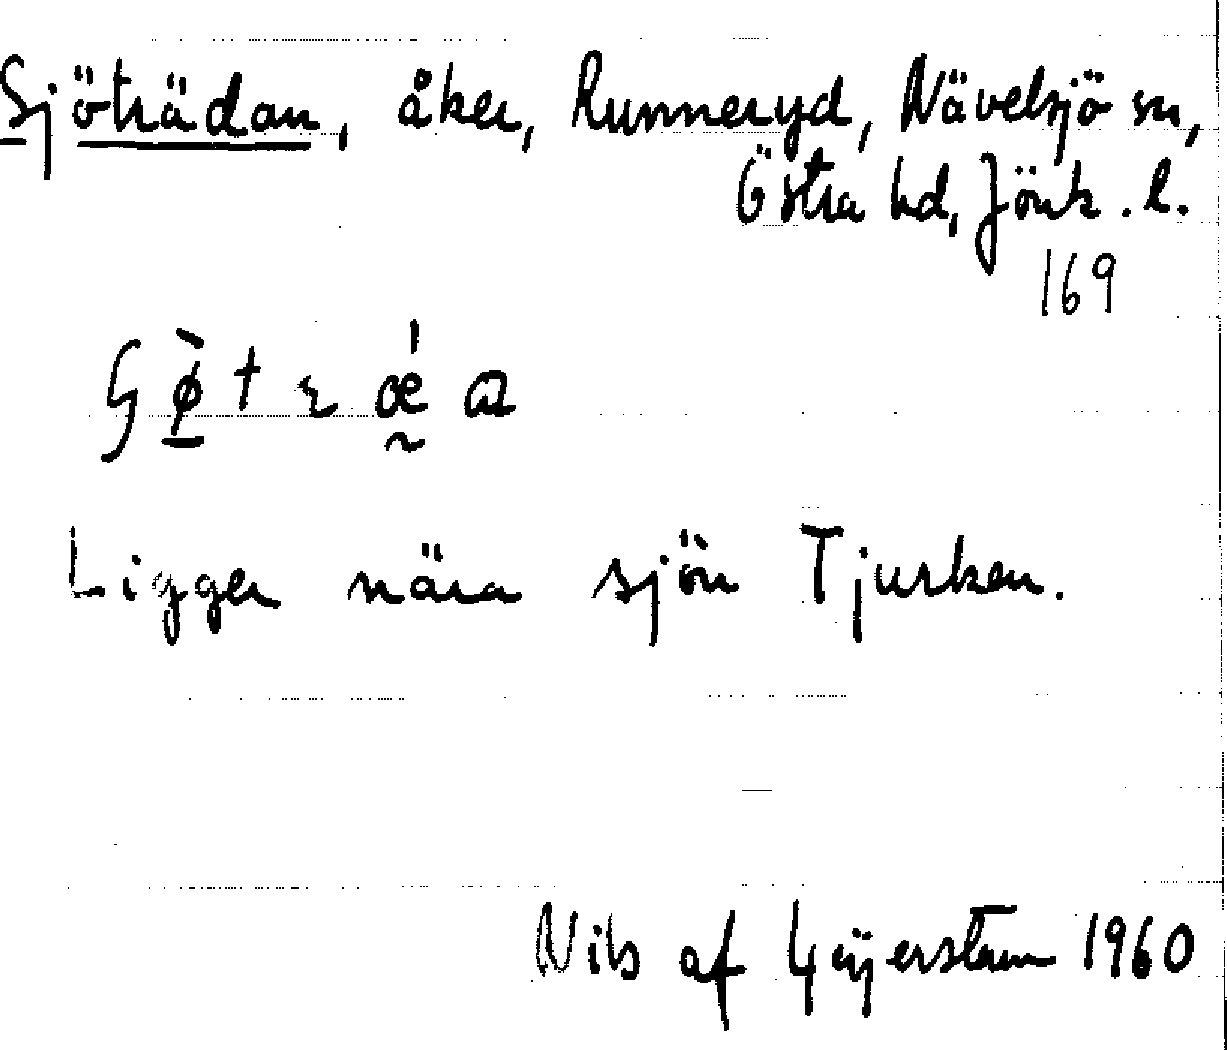 Sjöträdan, åker, Runneryd, Nävelsjö sn,
Östra hd, Jönk. l.
169
Ligger nära sjön Tjurken.
Nils af Geijerstam 1960